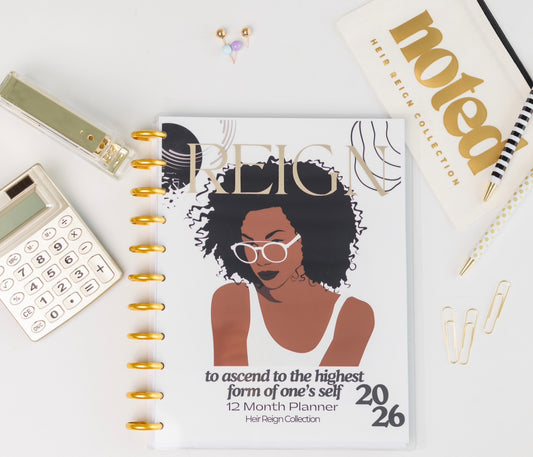 REIGN
to ascend to the highest
form of one's self
12 Month Planner
Heir Reign Collection
20
26
noted
HEIR REIGN COLLECTION